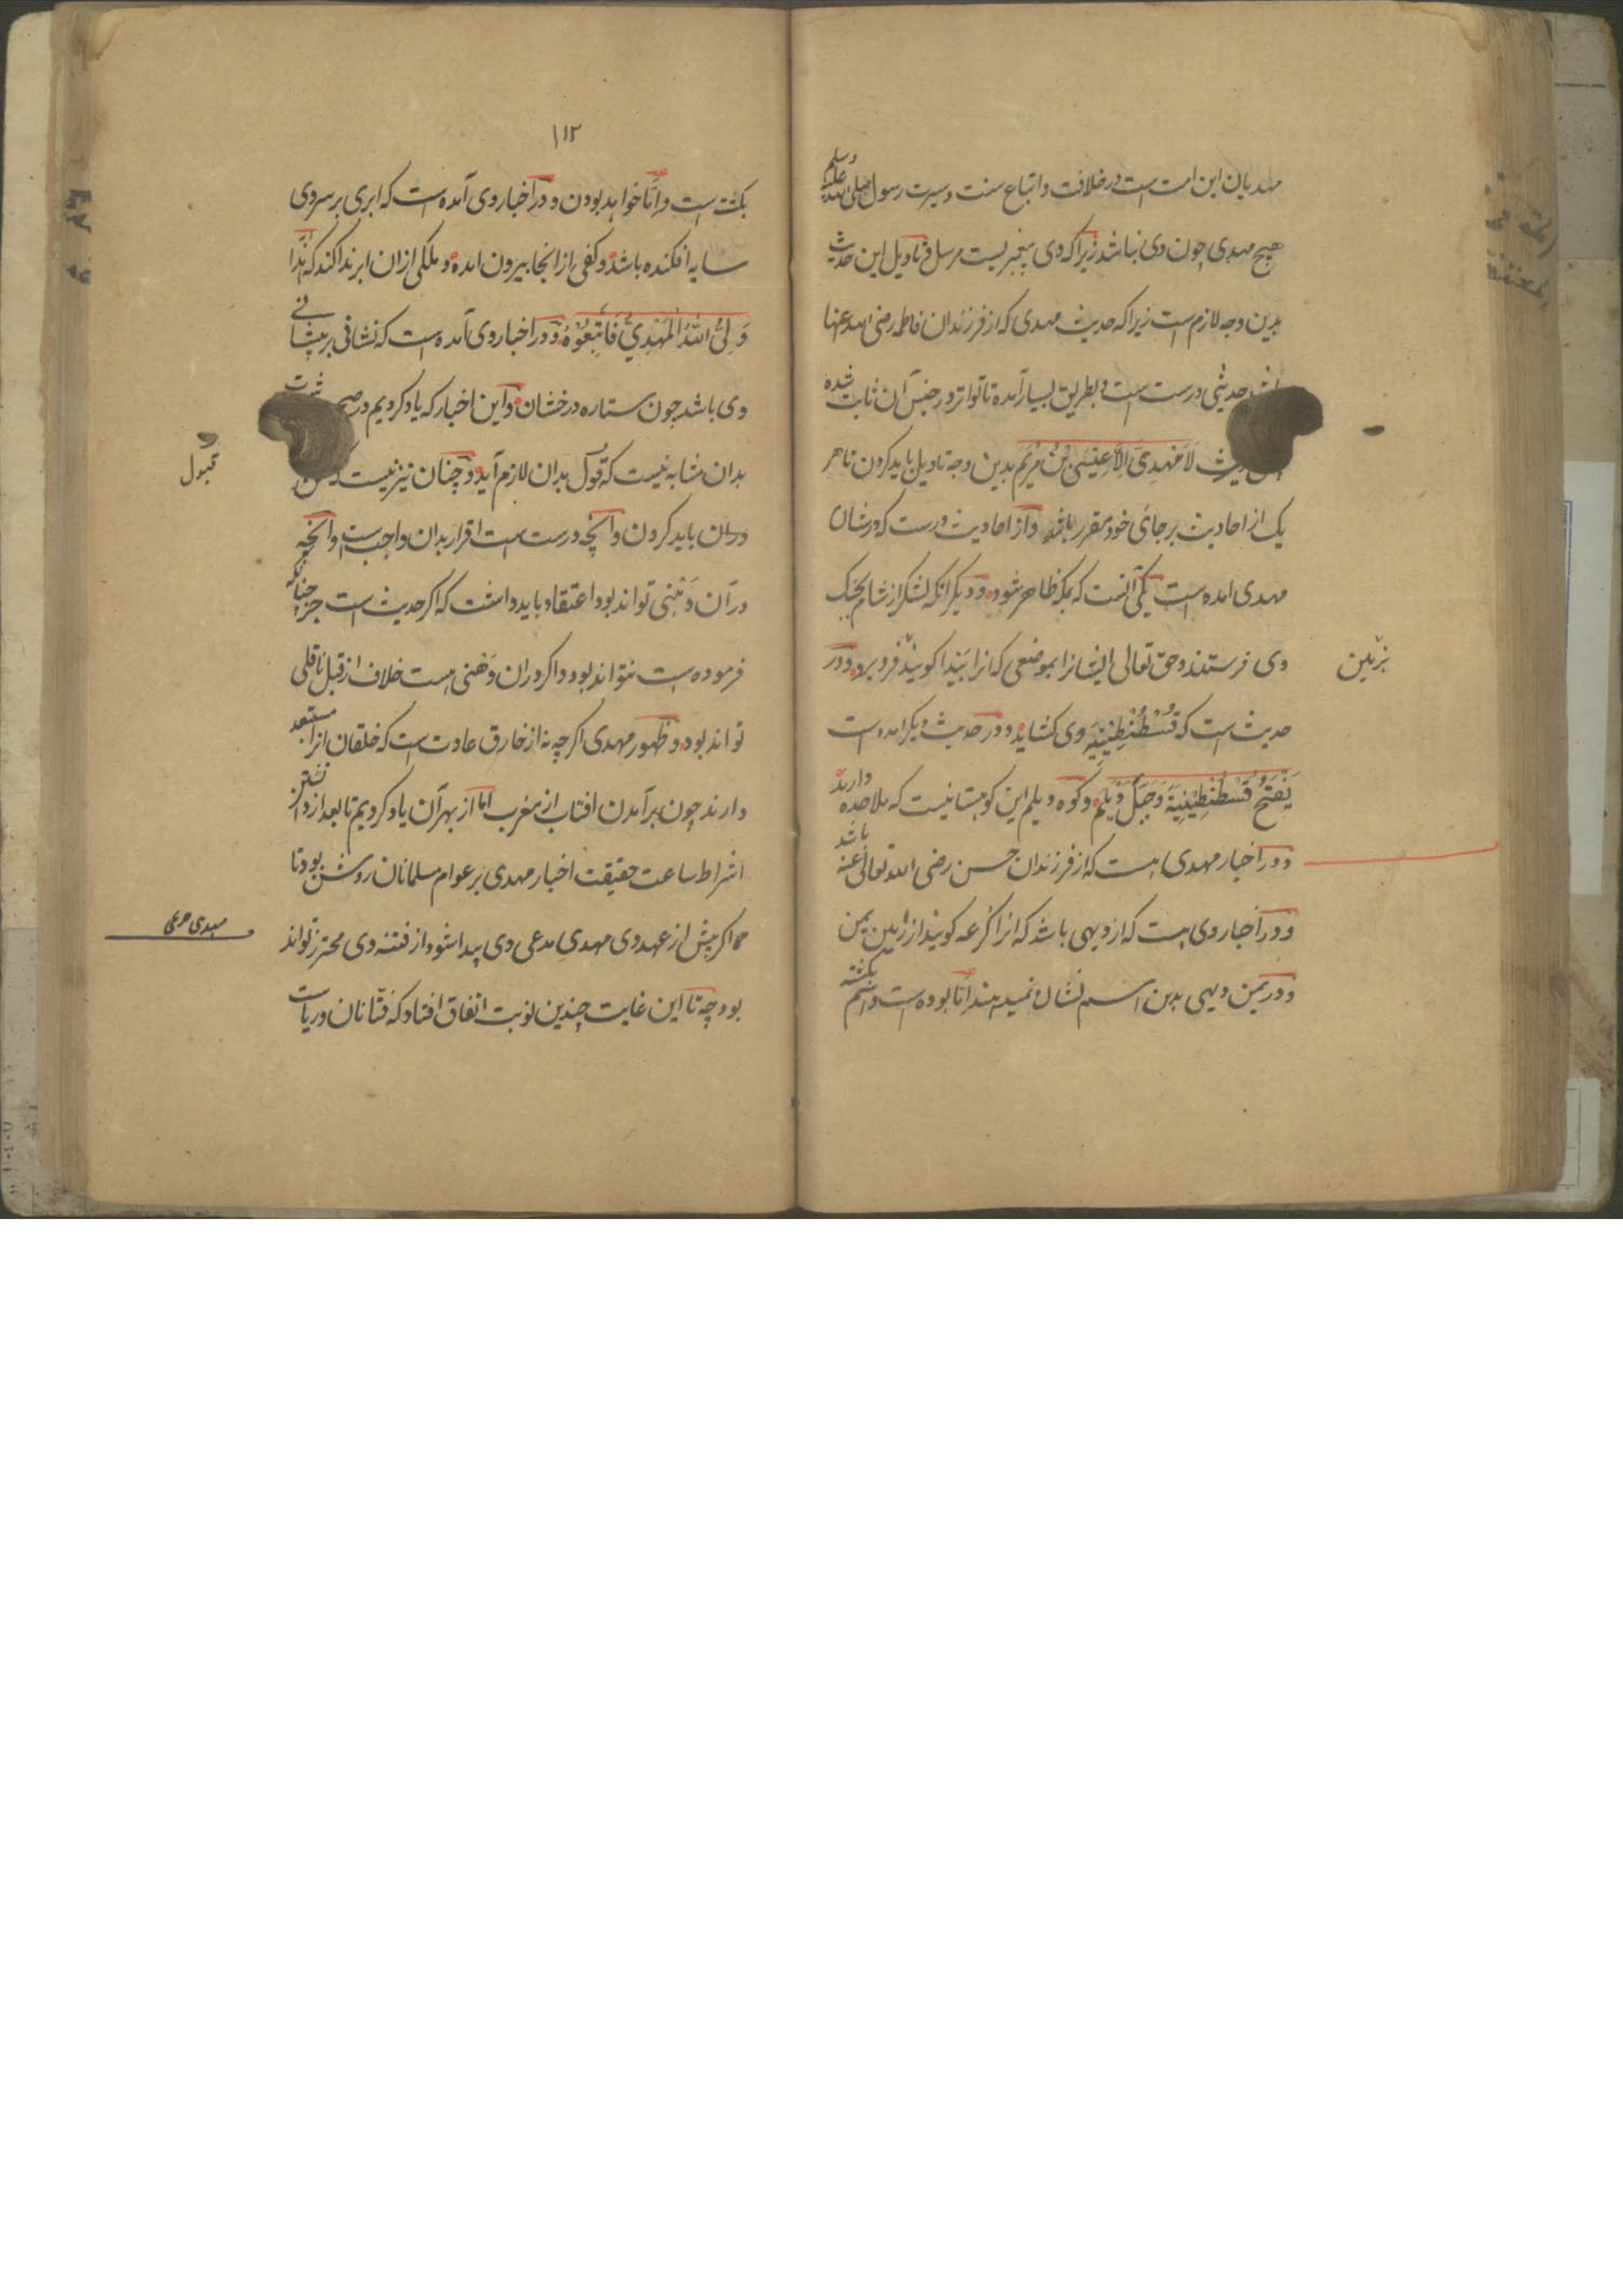 مهدیان این امت است در خلافت و اتباع سنت و سیرت رسول صلی الله علیه وسلم
هیچ مهدی چون وی نباشد زیرا که وی پیغمبریست مرسل و تاویل این حدیث
بدین وجه لازم است زیرا که حدیث مهدی که از فرزندان فاطمه رضی الله عنها
حدیثی درست است و بطریق بسیار آمده تا تواتر در جنس آن ثابت شده
لَا مَهْدِیَّ اِلَّا عِیْسَی بْنُ مَرْیَم بدین وجه تاویل باید کردن تا هر
یک از احادیث بر جای خود مقرر باشد و از احادیث درست که در شان
مهدی امده است یکی آنست که بمکه ظاهر شود و دیگر انکه لشکر از شام بجنک
وی فرستند و حق تعالی ایشانرا بموضعی که انرا بَیْدا کویند فرو برد و در
بزمین
حدیث است که قُسْطُنْطِیْنِیَه وی کشاید و در حدیث دیکر امده است
یَفْتَحُ قُسْطُنْطِیْنِیَةَ وَجَبَلَ دَیْلَم و کوه دیلم این کوهستانیست که ملاحده دارند
و در اخبار مهدی است که از فرزندان حسن رضی الله تعالی عنه باشد
و در اخبار وی است که از دیهی باشد که انرا کرعه کویند از زمین یمن
و در یمن دیهی بدین اسم نشان نمیدهند اما بوده است و اسم بکشته
۱۱۲
بکشته است و اِمّا خواهد بودن و در اخبار وی آمده است که ابری بر سر وی
سایه افکنده باشد و کفی از انجا بیرون امده و ملکی ازان ابر ندا کند که هٰذا
وَلِیُّ اللهِ الْمَهْدِیُّ فَاتَّبِعُوْهُ و در اخبار وی آمده است که نشانی بر پیشانی
وی باشد چون ستاره درخشان و این اخبار که یاد کردیم در
بدان مثابه نیست که قبول بدان لازم آید و چنان نیز نیست که
قبول
دران باید کردن و آنچه درست است اقرار بدان واجب است و آنچه
در آن وَهْنی تواند بود اعتقاد باید داشت که اکر حدیث است جز چنانکه
فرموده است نتواند بود و اکر دران وَهنی هست خلاف از قبل ناقلی
تواند بود و ظهور مهدی اکر چه نه از خارق عادت است که خلقان انرا مستبعد
دارند چون برآمدن افتاب از مغرب اما از بهر آن یاد کردیم تا بعد از دانستن
اشراط ساعت حقیقت اخبار مهدی بر عوام مسلمانان روشن بود تا
اکر پیش از عهد وی مهدی مدعی وی پیدا شود از فتنه وی محترز تواند
مهدی مدعی
بود چه تا این غایت چندین نوبت اتفاق افتاد که فتّانان در